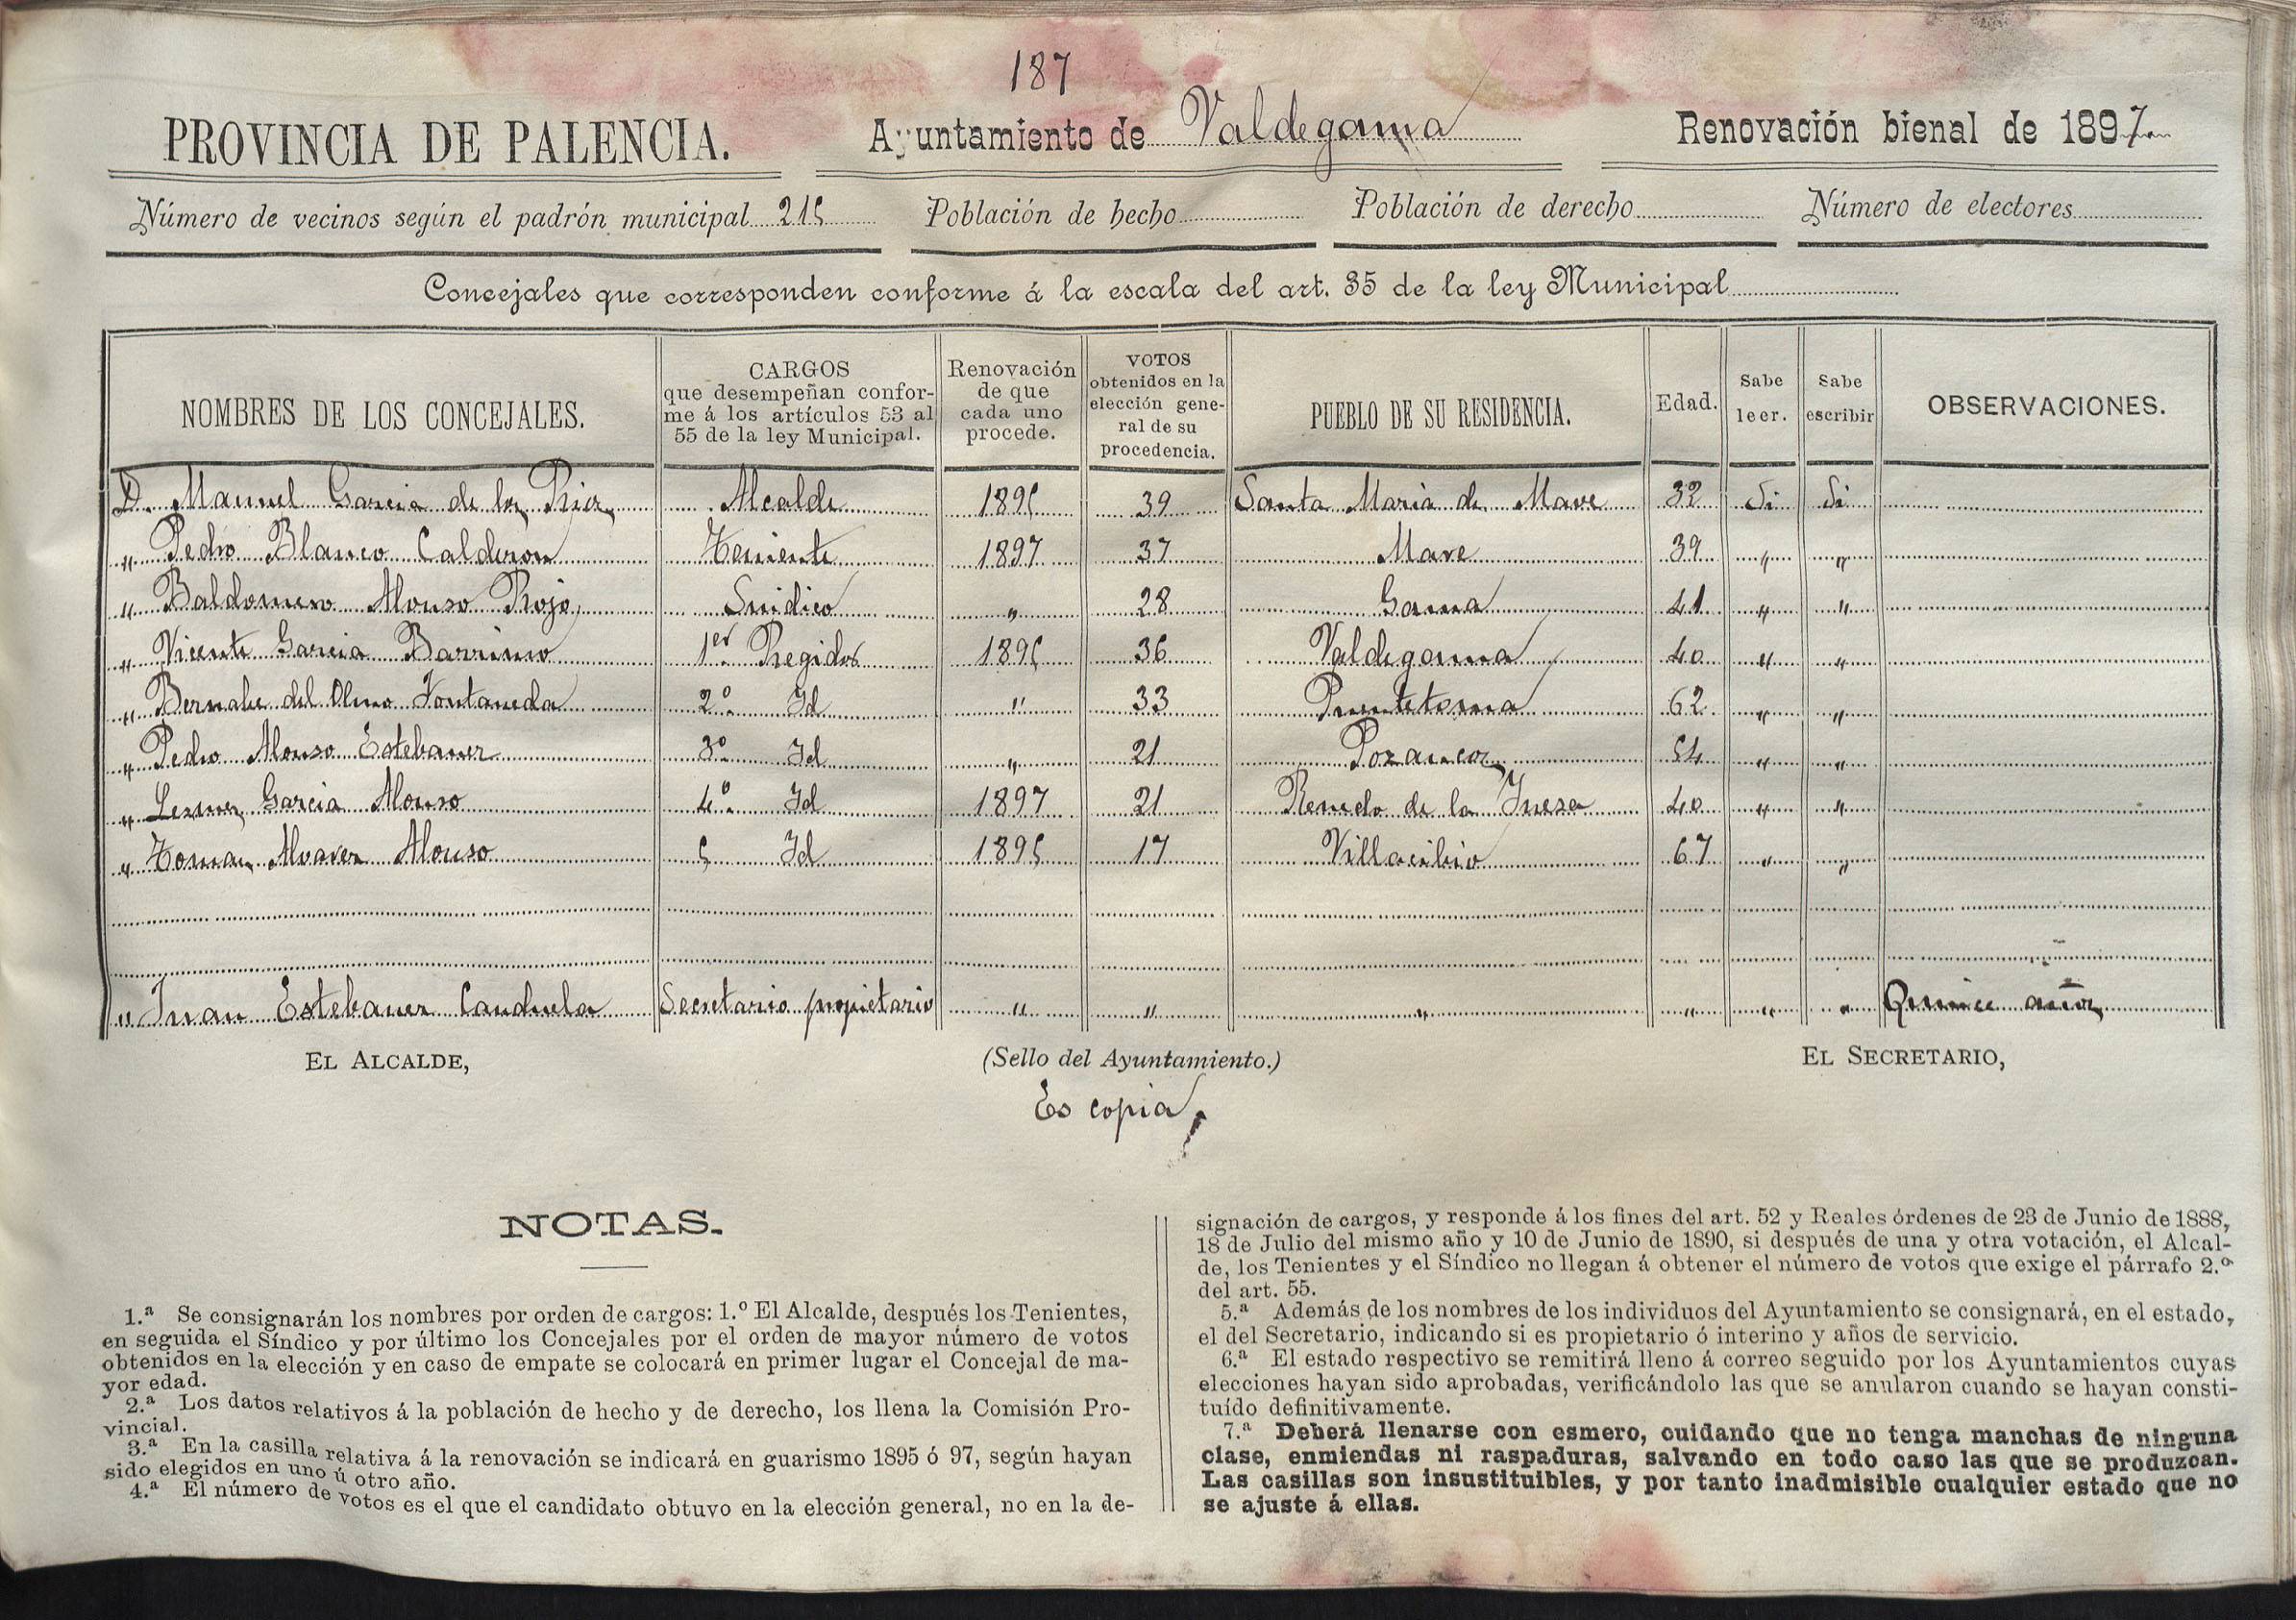 187
PROVINCIA DE PALENCIA. Ayuntamiento de Valdegama Renovación bienal de 1897
Número de vecinos según el padrón municipal 215 Población de hecho Población de derecho Número de electores
Concejales que corresponden conforme á la escala del art. 35 de la ley Municipal
NOMBRES DE LOS CONCEJALES. CARGOS que desempeñan confor-me á los artículos 53 al 55 de la ley Municipal. Renovación de que cada uno procede. VOTOS obtenidos en la elección gene-ral de su procedencia. PUEBLO DE SU RESIDENCIA. Edad. Sabe leer. Sabe escribir OBSERVACIONES.
D. Manuel Garcia de los Rios Alcalde 1895 39 Santa Maria de Mave 32 Si Si
" Pedro Blanco Calderon Teniente 1897 37 Mave 39 " "
" Baldomero Alonso Rojo Sindico " 28 Gama 41 " "
" Vicente Garcia Barriuso 1er Regidor 1895 36 Valdegama 40 " "
" Bernabe del Olmo Fontaneda 2º Id " 33 Puentetoma 62 " "
" Pedro Alonso Estebanez 3º Id " 21 Pozancos 54 " "
" Lesmes Garcia Alonso 4º Id 1897 21 Renedo de la Inera 40 " "
" Tomas Alvarez Alonso 5 Id 1895 17 Villacibio 67 " "
" Juan Estebanez Canduela Secretario propietario " " " " " " Quince años
EL ALCALDE, (Sello del Ayuntamiento.) EL SECRETARIO,
Es copia,
NOTAS.
1.ª Se consignarán los nombres por orden de cargos: 1.º El Alcalde, después los Tenientes,
en seguida el Síndico y por último los Concejales por el orden de mayor número de votos
obtenidos en la elección y en caso de empate se colocará en primer lugar el Concejal de ma-
yor edad.
2.ª Los datos relativos á la población de hecho y de derecho, los llena la Comisión Pro-
vincial.
3.ª En la casilla relativa á la renovación se indicará en guarismo 1895 ó 97, según hayan
sido elegidos en uno ú otro año.
4.ª El número de votos es el que el candidato obtuvo en la elección general, no en la de-
signación de cargos, y responde á los fines del art. 52 y Reales órdenes de 23 de Junio de 1888,
18 de Julio del mismo año y 10 de Junio de 1890, si después de una y otra votación, el Alcal-
de, los Tenientes y el Síndico no llegan á obtener el número de votos que exige el párrafo 2.º
del art. 55.
5.ª Además de los nombres de los individuos del Ayuntamiento se consignará, en el estado,
el del Secretario, indicando si es propietario ó interino y años de servicio.
6.ª El estado respectivo se remitirá lleno á correo seguido por los Ayuntamientos cuyas
elecciones hayan sido aprobadas, verificándolo las que se anularon cuando se hayan consti-
tuído definitivamente.
7.ª Deberá llenarse con esmero, cuidando que no tenga manchas de ninguna
clase, enmiendas ni raspaduras, salvando en todo caso las que se produzcan.
Las casillas son insustituibles, y por tanto inadmisible cualquier estado que no
se ajuste á ellas.